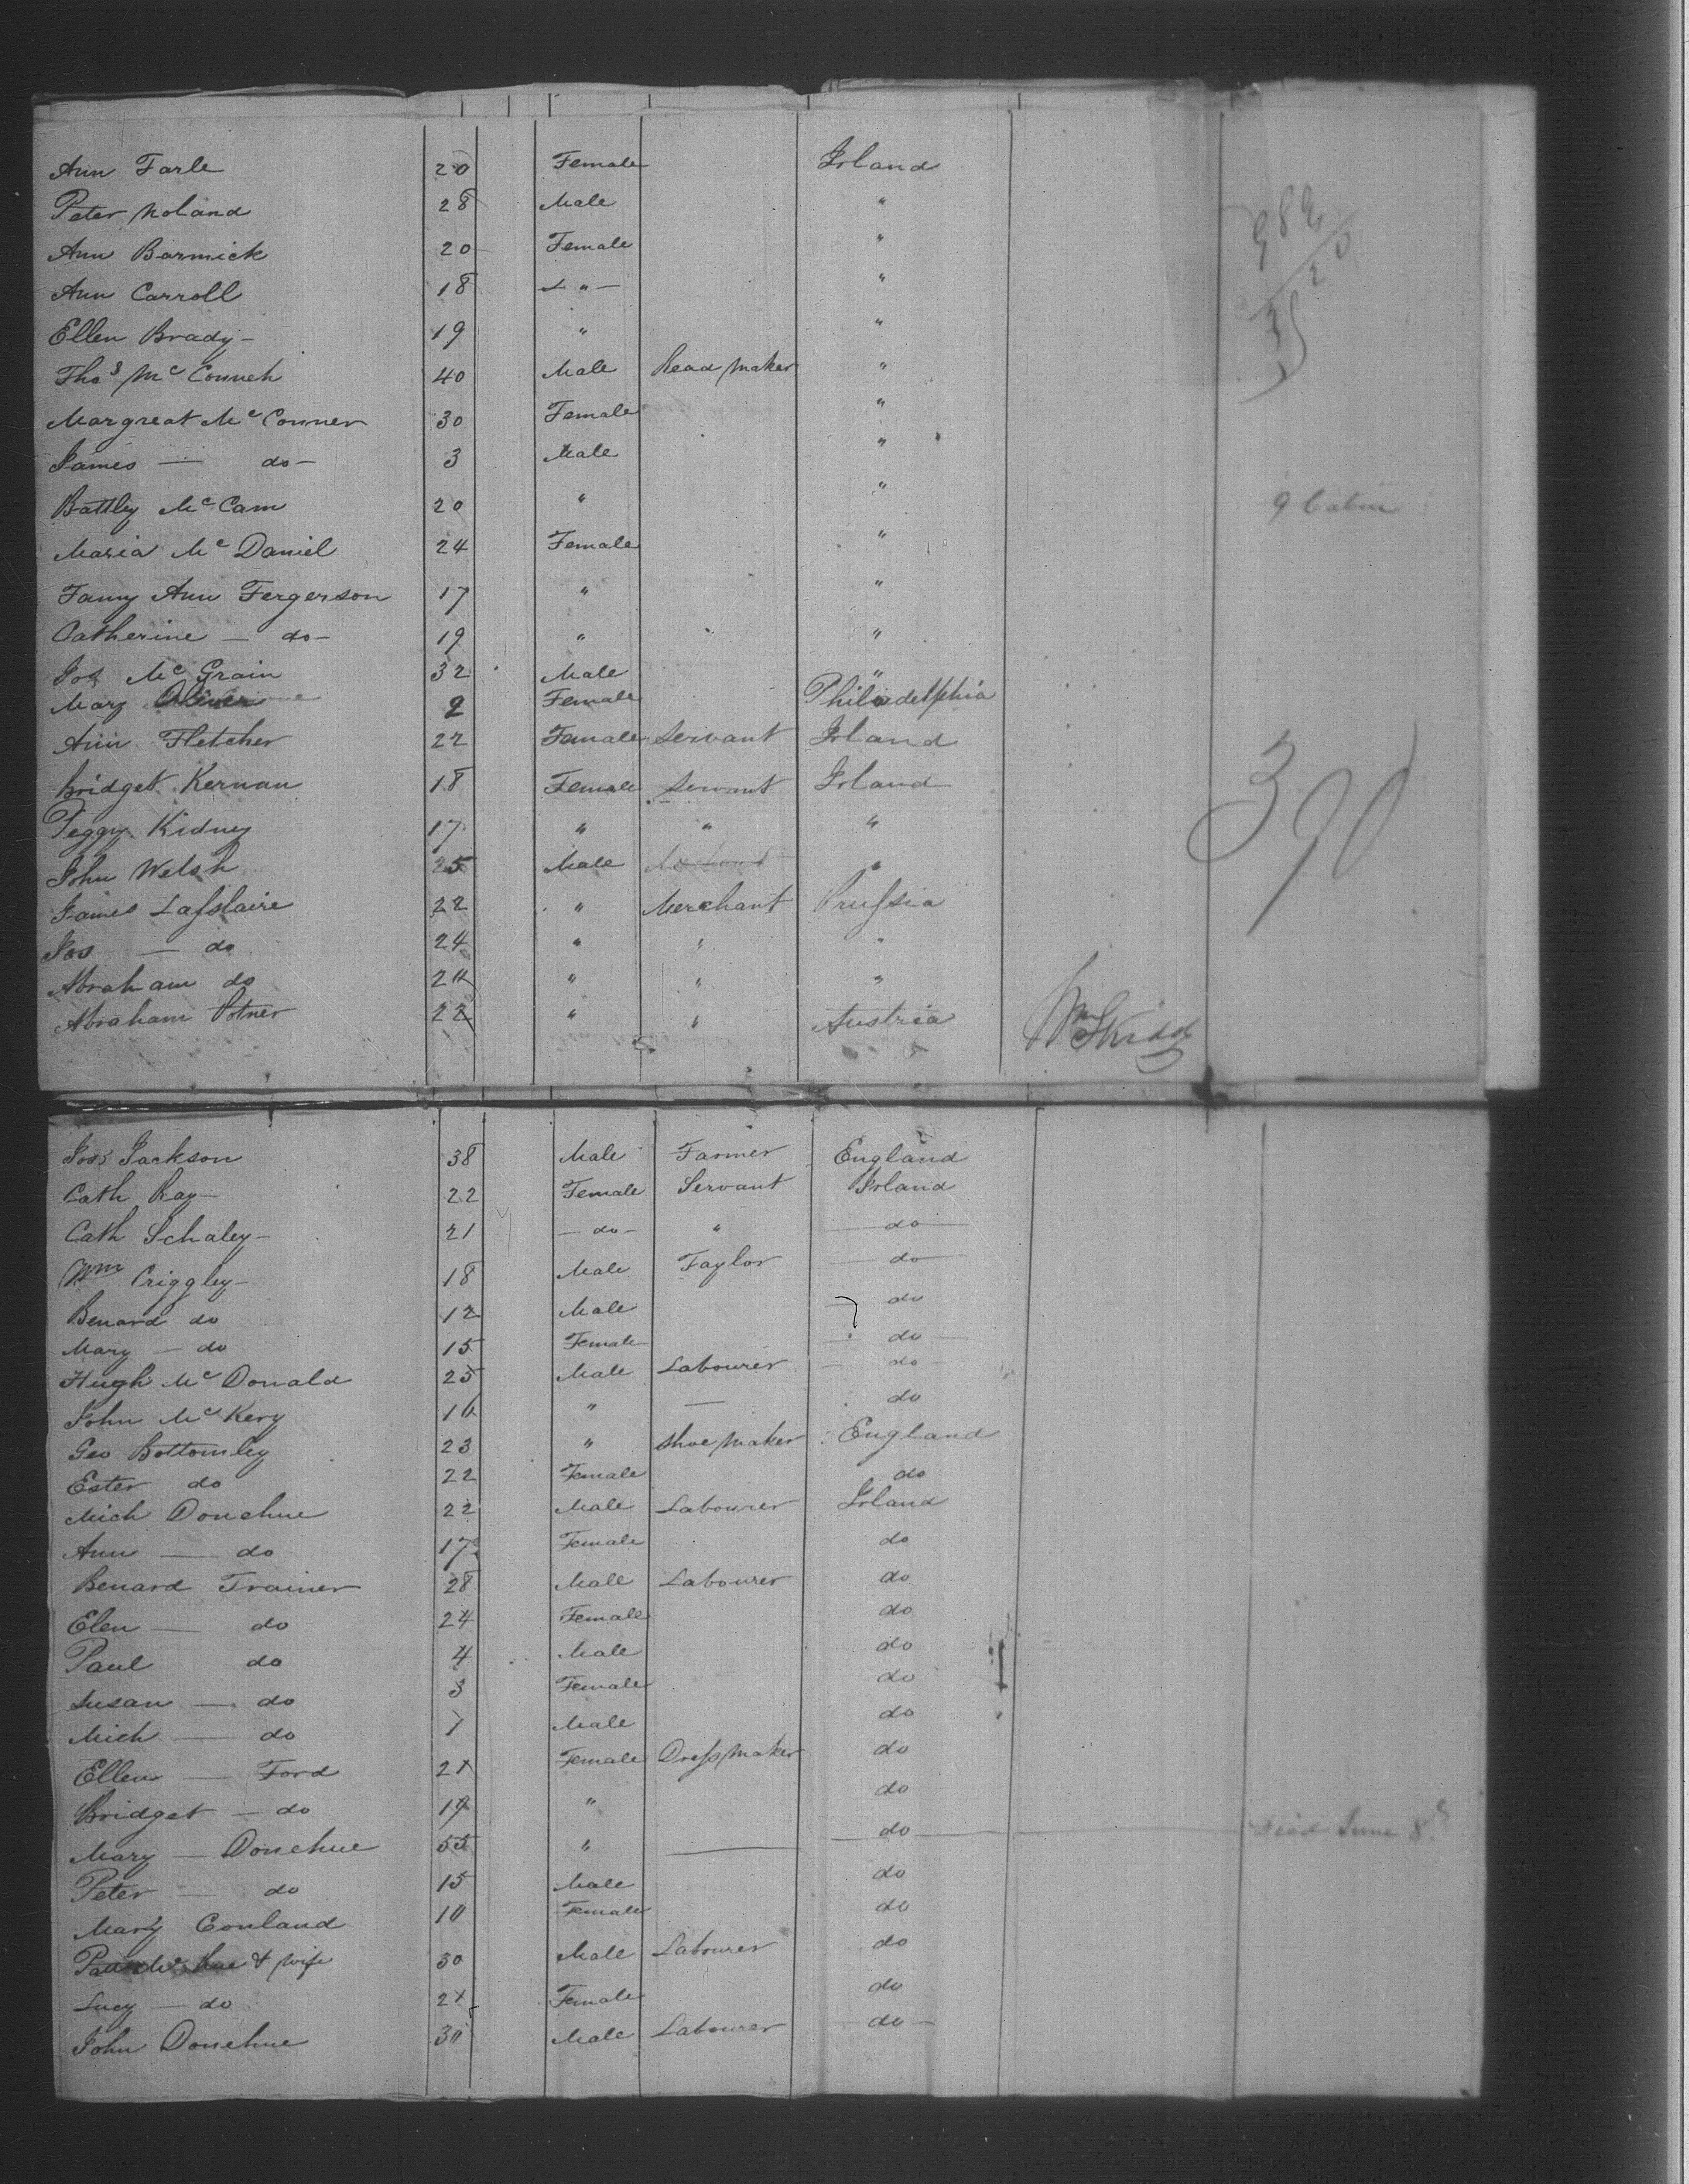 Ann Farle 20 Female Irland
Peter Noland 28 Male "
Ann Barmick 20 Female "
Ann Carroll 18 " "
Ellen Brady 19 " "
Thos Mc Conneh 40 Male Read Maker "
Margreat Mc Conner 30 Female "
James — do — 3 Male "
Battley Mc Cam 20 " "
9 Cabin
Maria Mc Daniel 24 Female "
Fanny Ann Fergerson 17 " "
Catherine — do — 19 " "
Jos Mc Grain 32 Male "
Mary 2 Female Philadelphia
Ann Fletcher 22 Female Servant Irland
Bridget Kernan 18 Female Servant Irland
390
Peggy Kidney 17 " " "
John Welsh 25 Male "
James Lafslaire 22 " Merchant Prufsia
Jos — do 24 " " "
Abraham do 20 " " "
Abraham Potner 22 " " Austria
Wm Skiddy
Jos Jackson 38 Male Farmer England
Cath Ray 22 Female Servant Irland
Cath Schaley 21 — do — " do
Wm Criggley 18 Male Taylor do
Benard do 12 Male do
Mary — do 15 Female do
Hugh Mc Donald 25 Male Labourer do
John Mc Kery 16 " — do
Geo Bottomley 23 " Shoe Maker England
Ester do 22 Female do
Mich Donehue 22 Male Labourer Irland
Ann — do 17 Female do
Benard Trainer 28 Male Labourer do
Elen — do 24 Female do
Paul do 4 Male do
Susan — do 3 Female do
Mich — do 1 Male do
Ellen — Ford 21 Female Drefs Maker do
Bridget — do 19 " do
Mary — Donehue 55 " — do Died June 8
Peter — do 15 Male do
Mary Conland 10 Female do
& Wife 30 Male Labourer do
Lucy — do 21 Female do
John Donehue 30 Male Labourer — do —